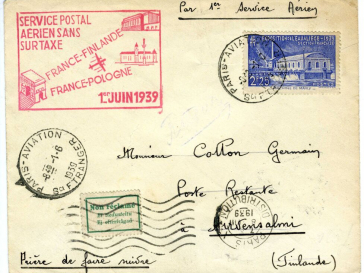 Par 1er Service Aérien
SERVICE POSTAL
AÉRIEN SANS
SURTAXE
FRANCE-FINLANDE
FRANCE-POLOGNE
1er JUIN 1939
PARIS-AVIATION
2F25
PARIS-AVIATION
1-6
1939
ETRANGER
Monsieur Cotton Germain
Poste Restante
Non réclamé
PARIS
DISTRIBUTION
1939
(Finlande)
Prière de faire suivre